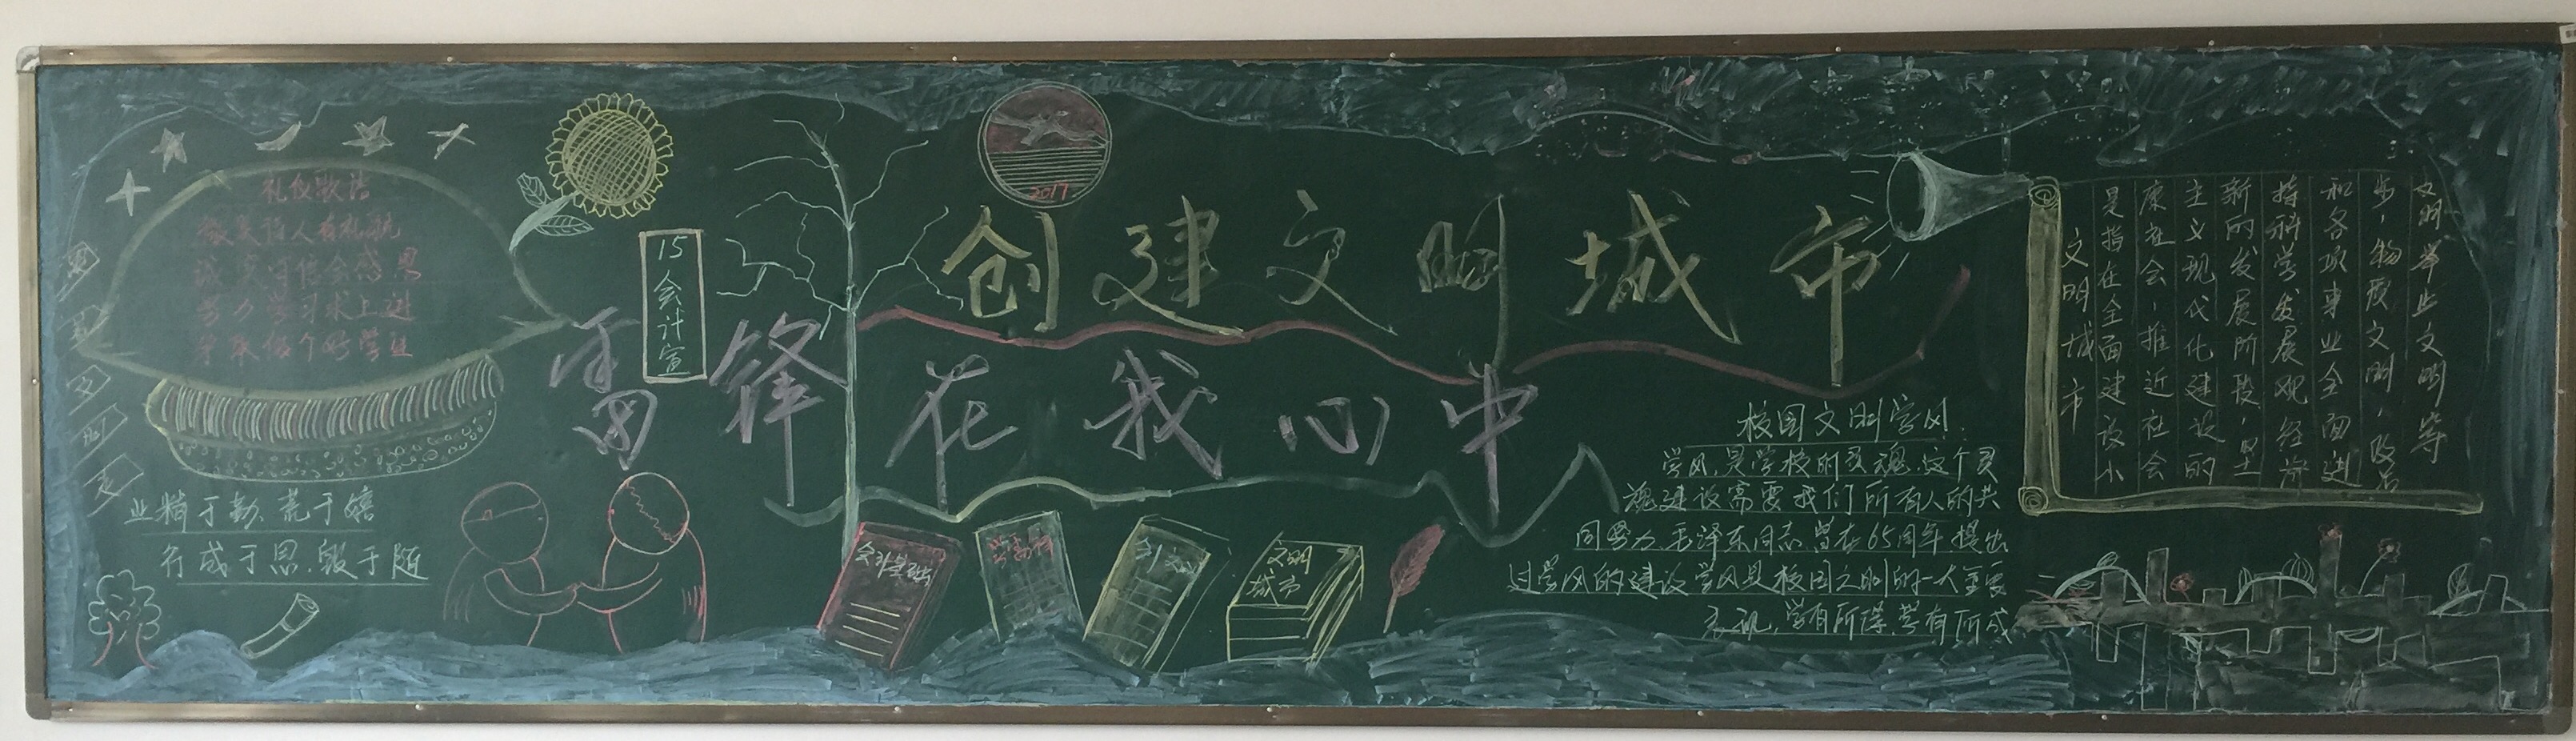 礼仪歌谣
微笑待人有礼貌
诚实守信会感恩
努力学习求上进
争取做个好学生
业精于勤、荒于嬉
行成于思、毁于随
15会计宣
2017
创建文明城市
雷锋在我心中
会计基础
文明
城市
校园文明学风
学风,是学校的灵魂、这个灵
魂建设需要我们所有人的共
同努力、毛泽东同志曾在65周年提出
过学风的建设学风是校园文明的一大重要
表现,学有所得、学有所成
文明城市
是指在全面建设小
康社会,推近社会
主义现代化建设的
新的发展阶段,坚
持科学发展观经济
和各项事业全面进
步,物质文明,政治
文明举止文明等